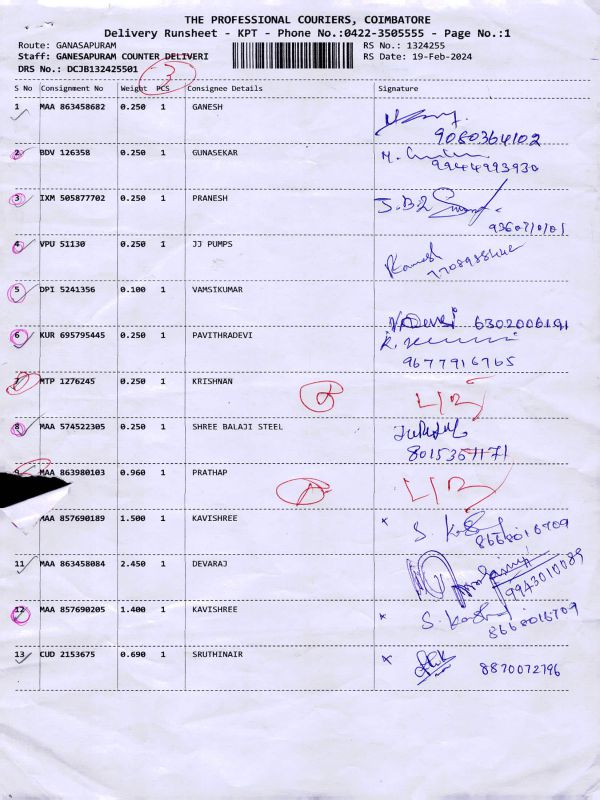 THE PROFESSIONAL COURIERS, COIMBATORE
Delivery Runsheet - KPT - Phone No.:0422-3505555 - Page No.:1
Route: GANASAPURAM RS No.: 1324255
Staff: GANESAPURAM COUNTER DELIVERI RS Date: 19-Feb-2024
DRS No.: DCJB132425501 3
S No Consignment No Weight PCS Consignee Details Signature
1 MAA 863458682 0.250 1 GANESH
9080364102
2 BDV 126358 0.250 1 GUNASEKAR
9944993930
3 IXM 505877702 0.250 1 PRANESH
4 VPU 51130 0.250 1 JJ PUMPS Ramesh
5 DPI 5241356 0.100 1 VAMSIKUMAR
V.Devi 6302006191
6 KUR 695795445 0.250 1 PAVITHRADEVI
9677916765
7 MTP 1276245 0.250 1 KRISHNAN
8 MAA 574522305 0.250 1 SHREE BALAJI STEEL
8015351171
9 MAA 863980103 0.960 1 PRATHAP
MAA 857690189 1.500 1 KAVISHREE
8668016709
11 MAA 863458084 2.450 1 DEVARAJ
9943010089
12 MAA 857690205 1.400 1 KAVISHREE
8668016709
13 CUD 2153675 0.690 1 SRUTHINAIR 8870072796